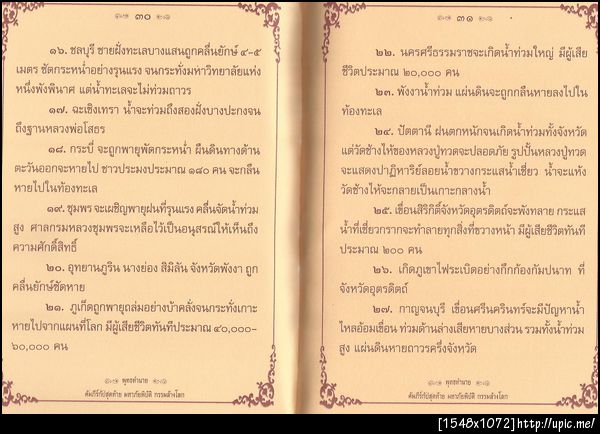 ๓๐
๑๖. ชลบุรี ชายฝั่งทะเลบางแสนถูกคลื่นยักษ์ ๔-๕
เมตร ซัดกระหน่ำอย่างรุนแรง จนกระทั่งมหาวิทยาลัยแห่ง
หนึ่งพังพินาศ แต่น้ำทะเลจะไม่ท่วมถาวร
๑๗. ฉะเชิงเทรา น้ำจะท่วมถึงสองฝั่งบางปะกงจน
ถึงฐานหลวงพ่อโสธร
๑๘. กระบี่ จะถูกพายุพัดกระหน่ำ ผืนดินทางด้าน
ตะวันออกจะหายไป ชาวประมงประมาณ ๑๘๐ คน จะกลืน
หายไปในท้องทะเล
๑๙. ชุมพร จะเผชิญพายุฝนที่รุนแรง คลื่นจัดน้ำท่วม
สูง ศาลกรมหลวงชุมพรจะเหลือไว้เป็นอนุสรณ์ให้เห็นถึง
ความศักดิ์สิทธิ์
๒๐. อุทยานภูริน นางย่อง สิมิลัน จังหวัดพังงา ถูก
คลื่นยักษ์ซัดหาย
๒๑. ภูเก็ตถูกพายุถล่มอย่างบ้าคลั่งจนกระทั่งเกาะ
หายไปจากแผนที่โลก มีผู้เสียชีวิตทันทีประมาณ ๔๐,๐๐๐-
๖๐,๐๐๐ คน
พุทธทำนาย
คัมภีร์กัปสุดท้าย มหาภัยพิบัติ กรรมล้างโลก
๓๑
๒๒. นครศรีธรรมราชจะเกิดน้ำท่วมใหญ่ มีผู้เสีย
ชีวิตประมาณ ๒๐,๐๐๐ คน
๒๓. พังงาน้ำท่วม แผ่นดินจะถูกกลืนหายลงไปใน
ท้องทะเล
๒๔. ปัตตานี ฝนตกหนักจนเกิดน้ำท่วมทั้งจังหวัด
แต่วัดช้างไห้ของหลวงปู่ทวดจะปลอดภัย รูปปั้นหลวงปู่ทวด
จะแสดงปาฏิหาริย์ลอยน้ำขวางกระแสน้ำเชี่ยว น้ำจะแห้ง
วัดช้างไห้จะกลายเป็นเกาะกลางน้ำ
๒๕. เขื่อนสิริกิติ์จังหวัดอุตรดิตถ์จะพังทลาย กระแส
น้ำที่เชี่ยวกรากจะทำลายทุกสิ่งที่ขวางหน้า มีผู้เสียชีวิตทันที
ประมาณ ๒๐๐ คน
๒๖. เกิดภูเขาไฟระเบิดอย่างกึกก้องกัมปนาท ที่
จังหวัดอุตรดิตถ์
๒๗. กาญจนบุรี เขื่อนศรีนครินทร์จะมีปัญหาน้ำ
ไหลอ้อมเขื่อน ท่วมด้านล่างเสียหายบางส่วน รวมทั้งน้ำท่วม
สูง แผ่นดินหายถาวรครึ่งจังหวัด
พุทธทำนาย
คัมภีร์กัปสุดท้าย มหาภัยพิบัติ กรรมล้างโลก
[1548x1072]http://upic.me/